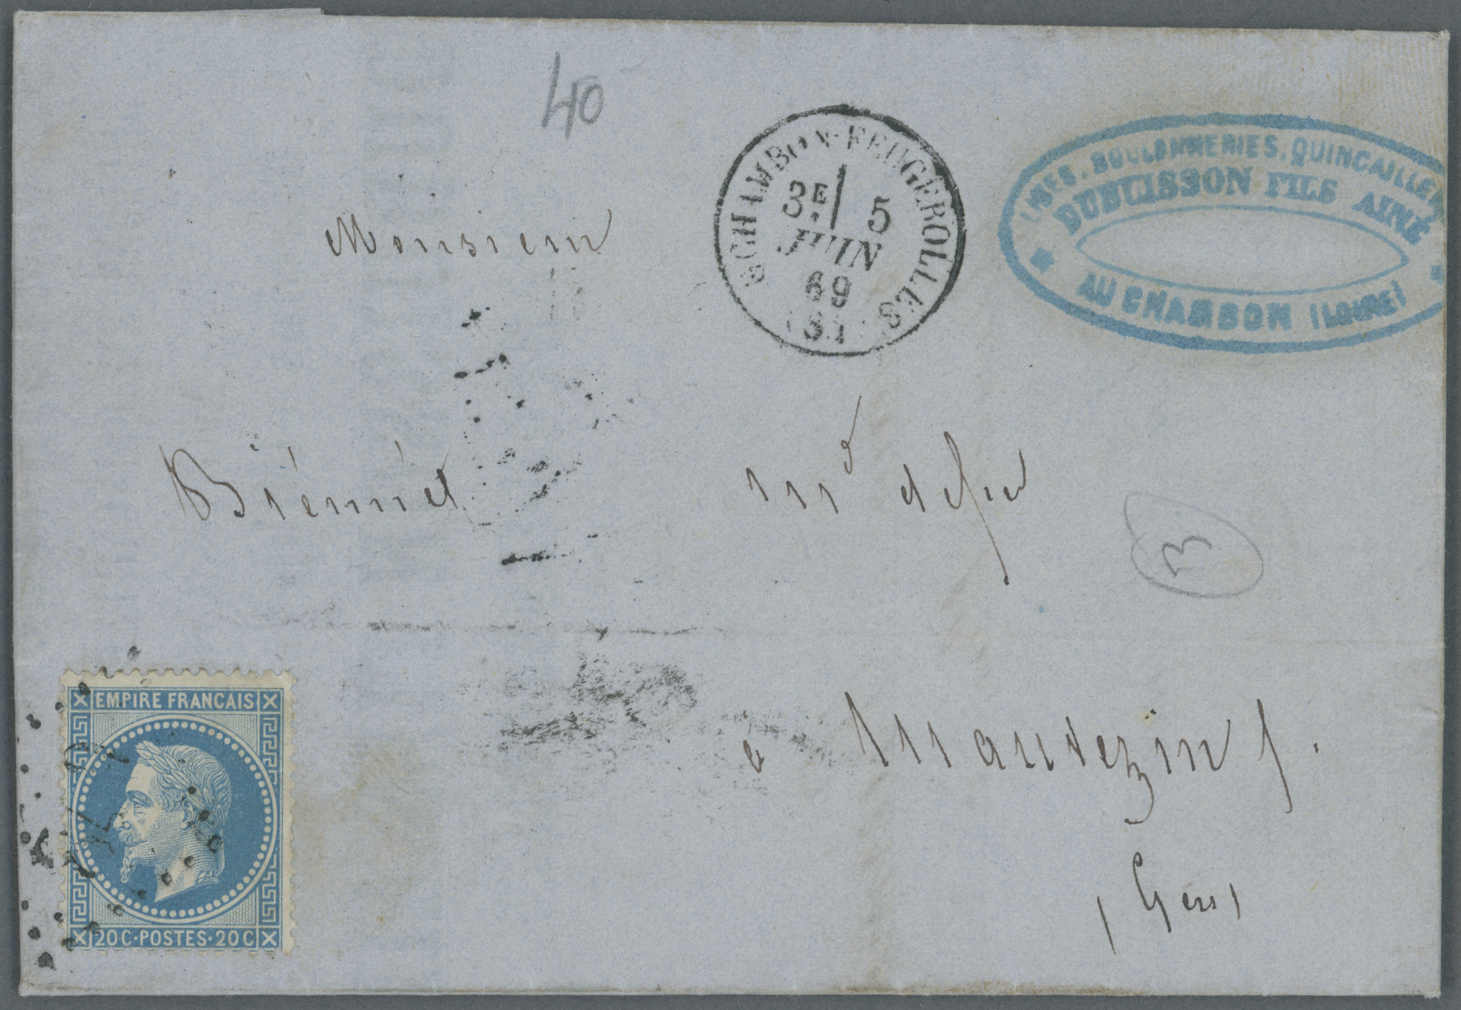 40
CHAMBON-FEUGEROLLES
3E 5
JUIN
69
BOULONNERIES, QUINCAILLERIE
DUBUISSON FILS AINÉ
AU CHAMBON (LOIRE)
Monsieur
md
à Mauvezin
(Gers)
3
EMPIRE FRANCAIS
20 C·POSTES·20 C